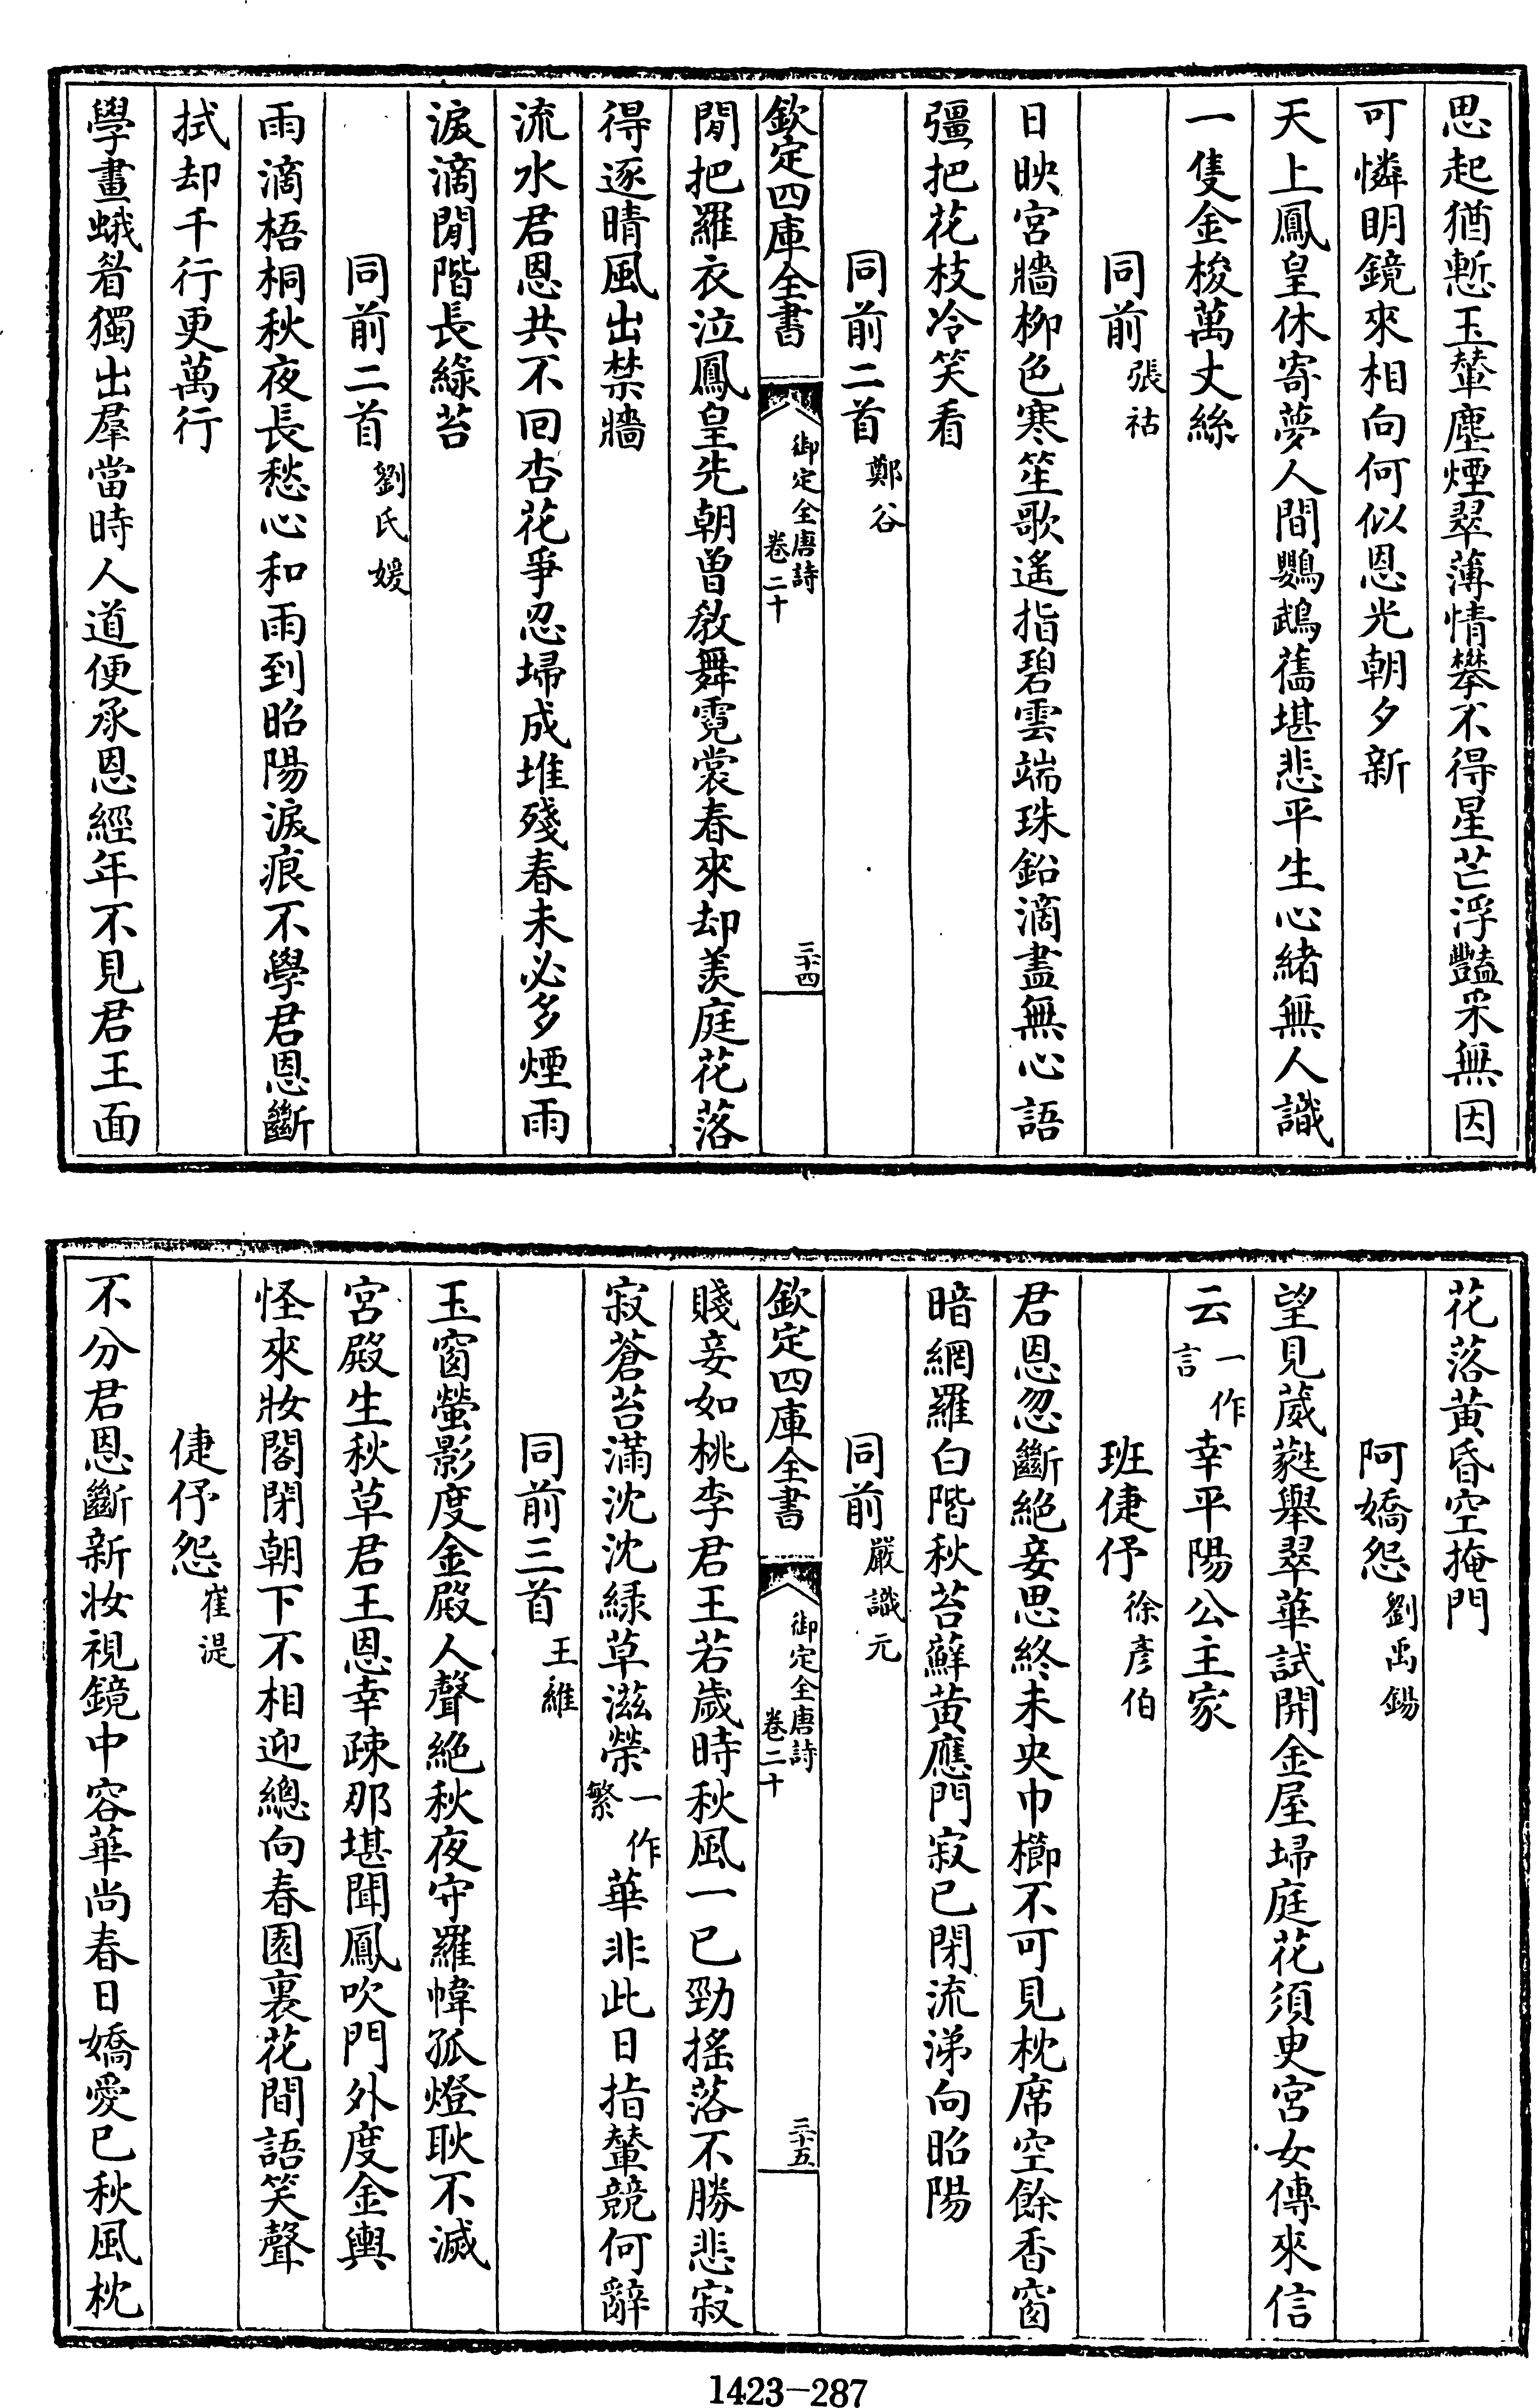 思起猶慙玉輦塵煙翠薄情攀不得星芒浮豔采無因
可憐明鏡來相向何似恩光朝夕新
天上鳳皇休寄夢人間鸚鵡舊堪悲平生心緒無人識
一隻金梭萬丈絲
同前 張祜
日映宮牆柳色寒笙歌遙指碧雲端珠鉛滴盡無心語
彊把花枝冷笑看
同前二首 鄭谷
欽定四庫全書 御定全唐詩 卷二十 三十四
閒把羅衣泣鳳皇先朝曾教舞霓裳春來却羨庭花落
得逐晴風出禁牆
流水君恩共不回杏花爭忍埽成堆殘春未必多煙雨
淚滴閒階長綠苔
同前二首 劉氏媛
雨滴梧桐秋夜長愁心和雨到昭陽淚痕不學君恩斷
拭却千行更萬行
學畫蛾眉獨出羣當時人道便承恩經年不見君王面
花落黃昏空掩門
阿嬌怨 劉禹錫
望見葳蕤舉翠華試開金屋埽庭花須臾宮女傳來信
云一作言幸平陽公主家
班倢伃 徐彥伯
君恩忽斷絕妾思終未央巾櫛不可見枕席空餘香窗
暗網羅白階秋苔蘚黃應門寂已閉流涕向昭陽
同前 嚴識元
欽定四庫全書 御定全唐詩 卷二十 三十五
賤妾如桃李君王若歲時秋風一已勁搖落不勝悲寂
寂蒼苔滿沈沈綠草滋榮一作繁華非此日指輦競何辭
同前三首 王維
玉窗螢影度金殿人聲絕秋夜守羅幃孤燈耿不滅
宮殿生秋草君王恩幸疎那堪聞鳳吹門外度金輿
怪來妝閣閉朝下不相迎總向春園裏花間語笑聲
倢伃怨 崔湜
不分君恩斷新妝視鏡中容華尚春日嬌愛已秋風枕
1423-287